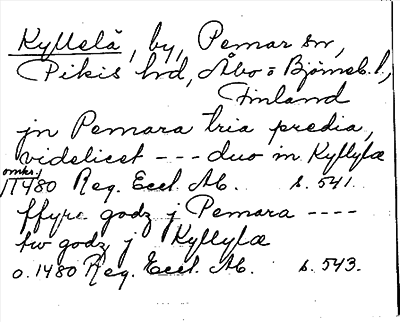 Kyllelä, by, Pemar sn,
Pikis hd, Åbo o Björneb. l.,
Finland
jn Pemara tria predia,
videlicet --- duo in Kyllylæ
omkr.
1480 Reg. Eccl. Ab. s. 541.
ffyra godz j Pemara ----
tw godz j Kyllylæ
o. 1480 Reg. Eccl. Ab. s. 543.